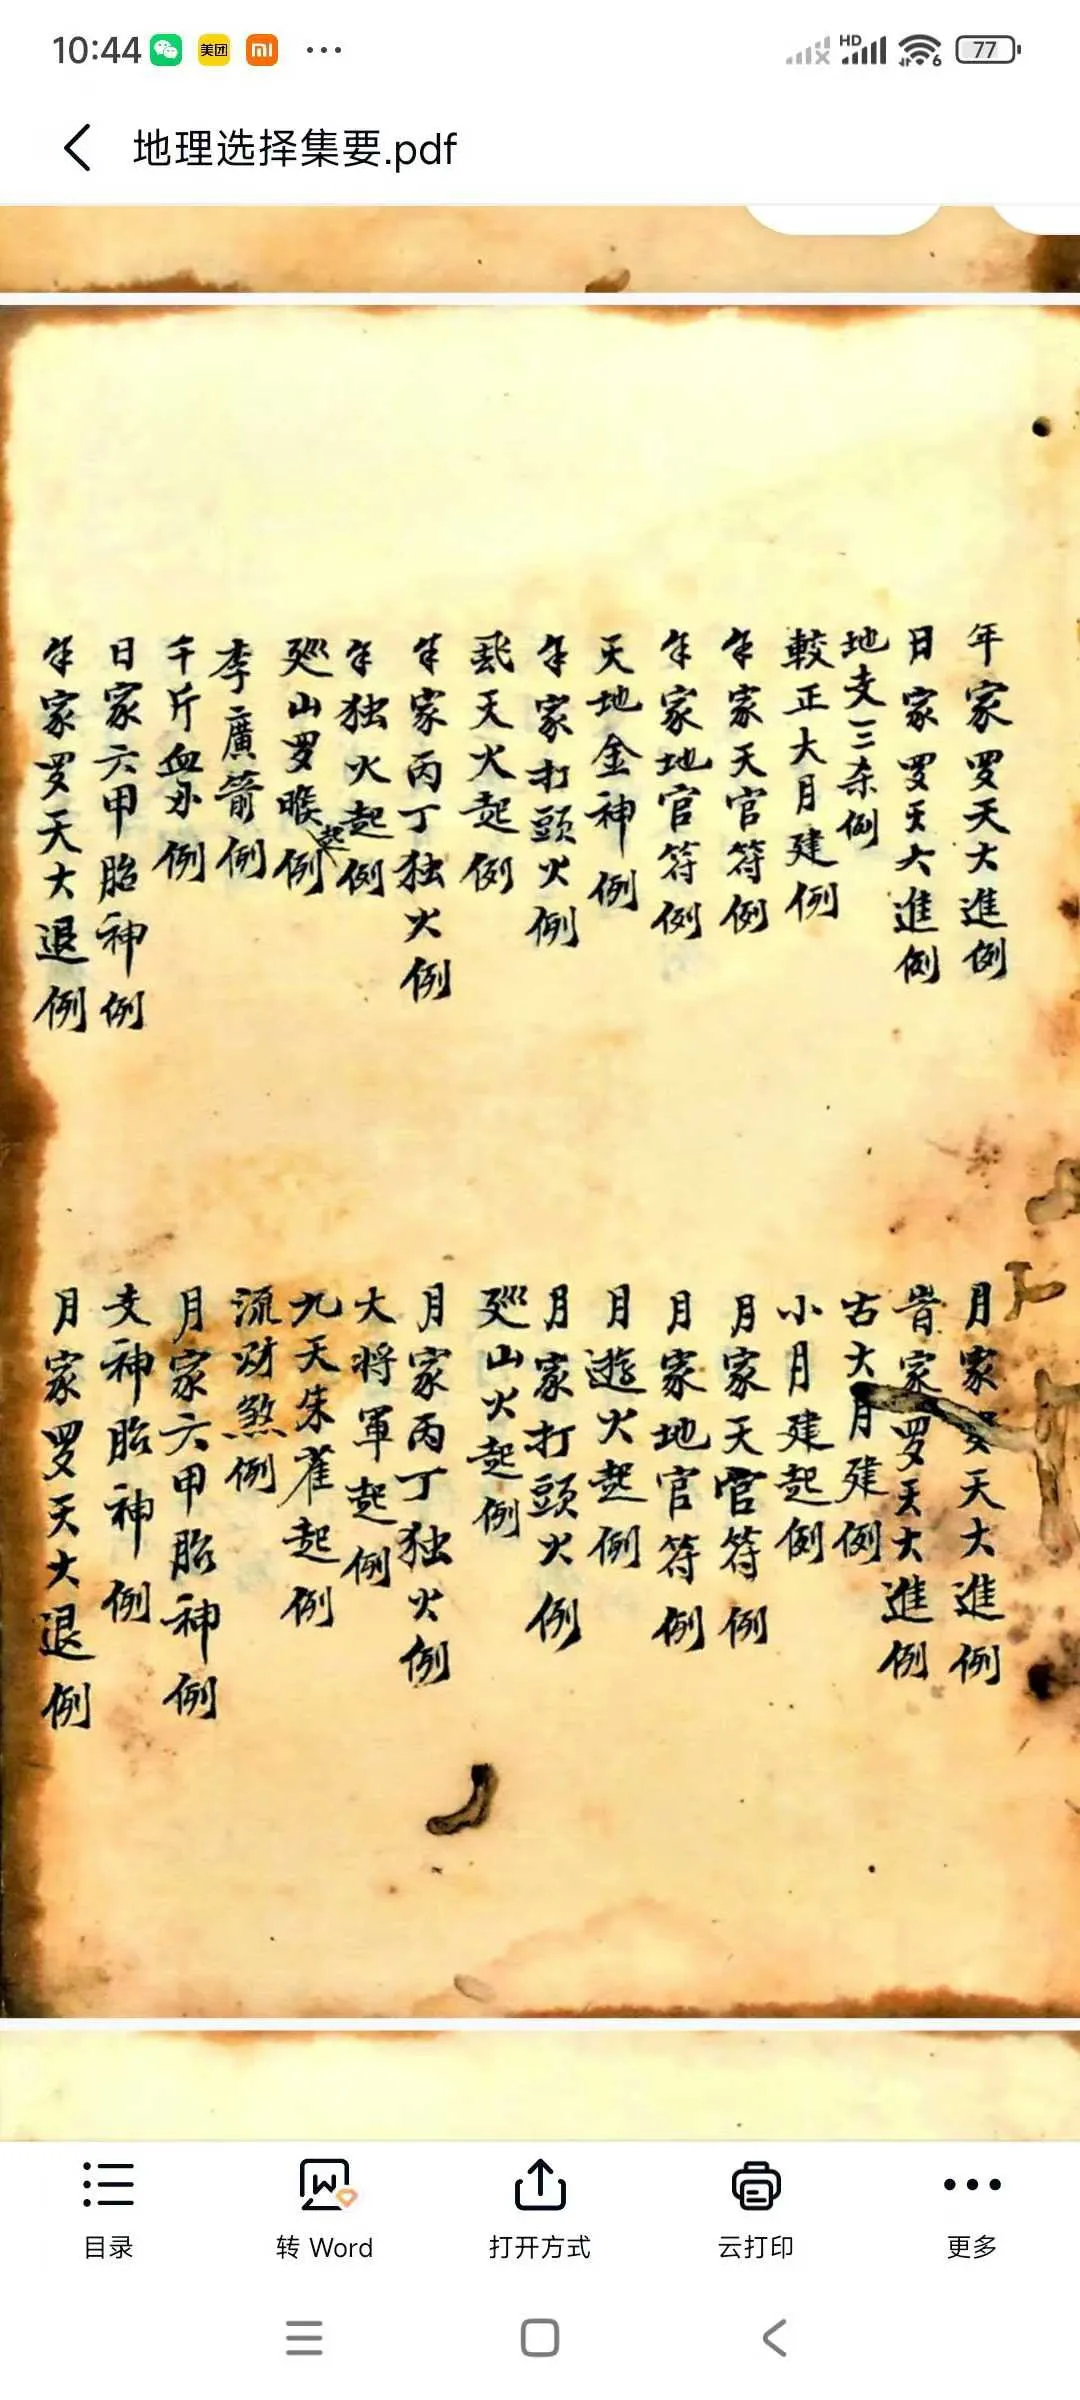 10:44 美团 HD 6 77
地理选择集要.pdf
年家罗天大進例
日家罗天大進例
地支三杀例
較正大月建例
年家天官符例
年家地官符例
天地金神例
年家打頭火例
飛天火起例
年家丙丁独火例
年独火起例
廵山罗睺起例
李廣箭例
千斤血刃例
日家六甲胎神例
年家罗天大退例
月家罗天大進例
時家罗天大進例
古大月建例
小月建起例
月家天官符例
月家地官符例
月遊火起例
月家打頭火例
廵山火起例
月家丙丁独火例
大将軍起例
九天朱雀起例
流财煞例
月家六甲胎神例
支神胎神例
月家罗天大退例
目录 转 Word 打开方式 云打印 更多